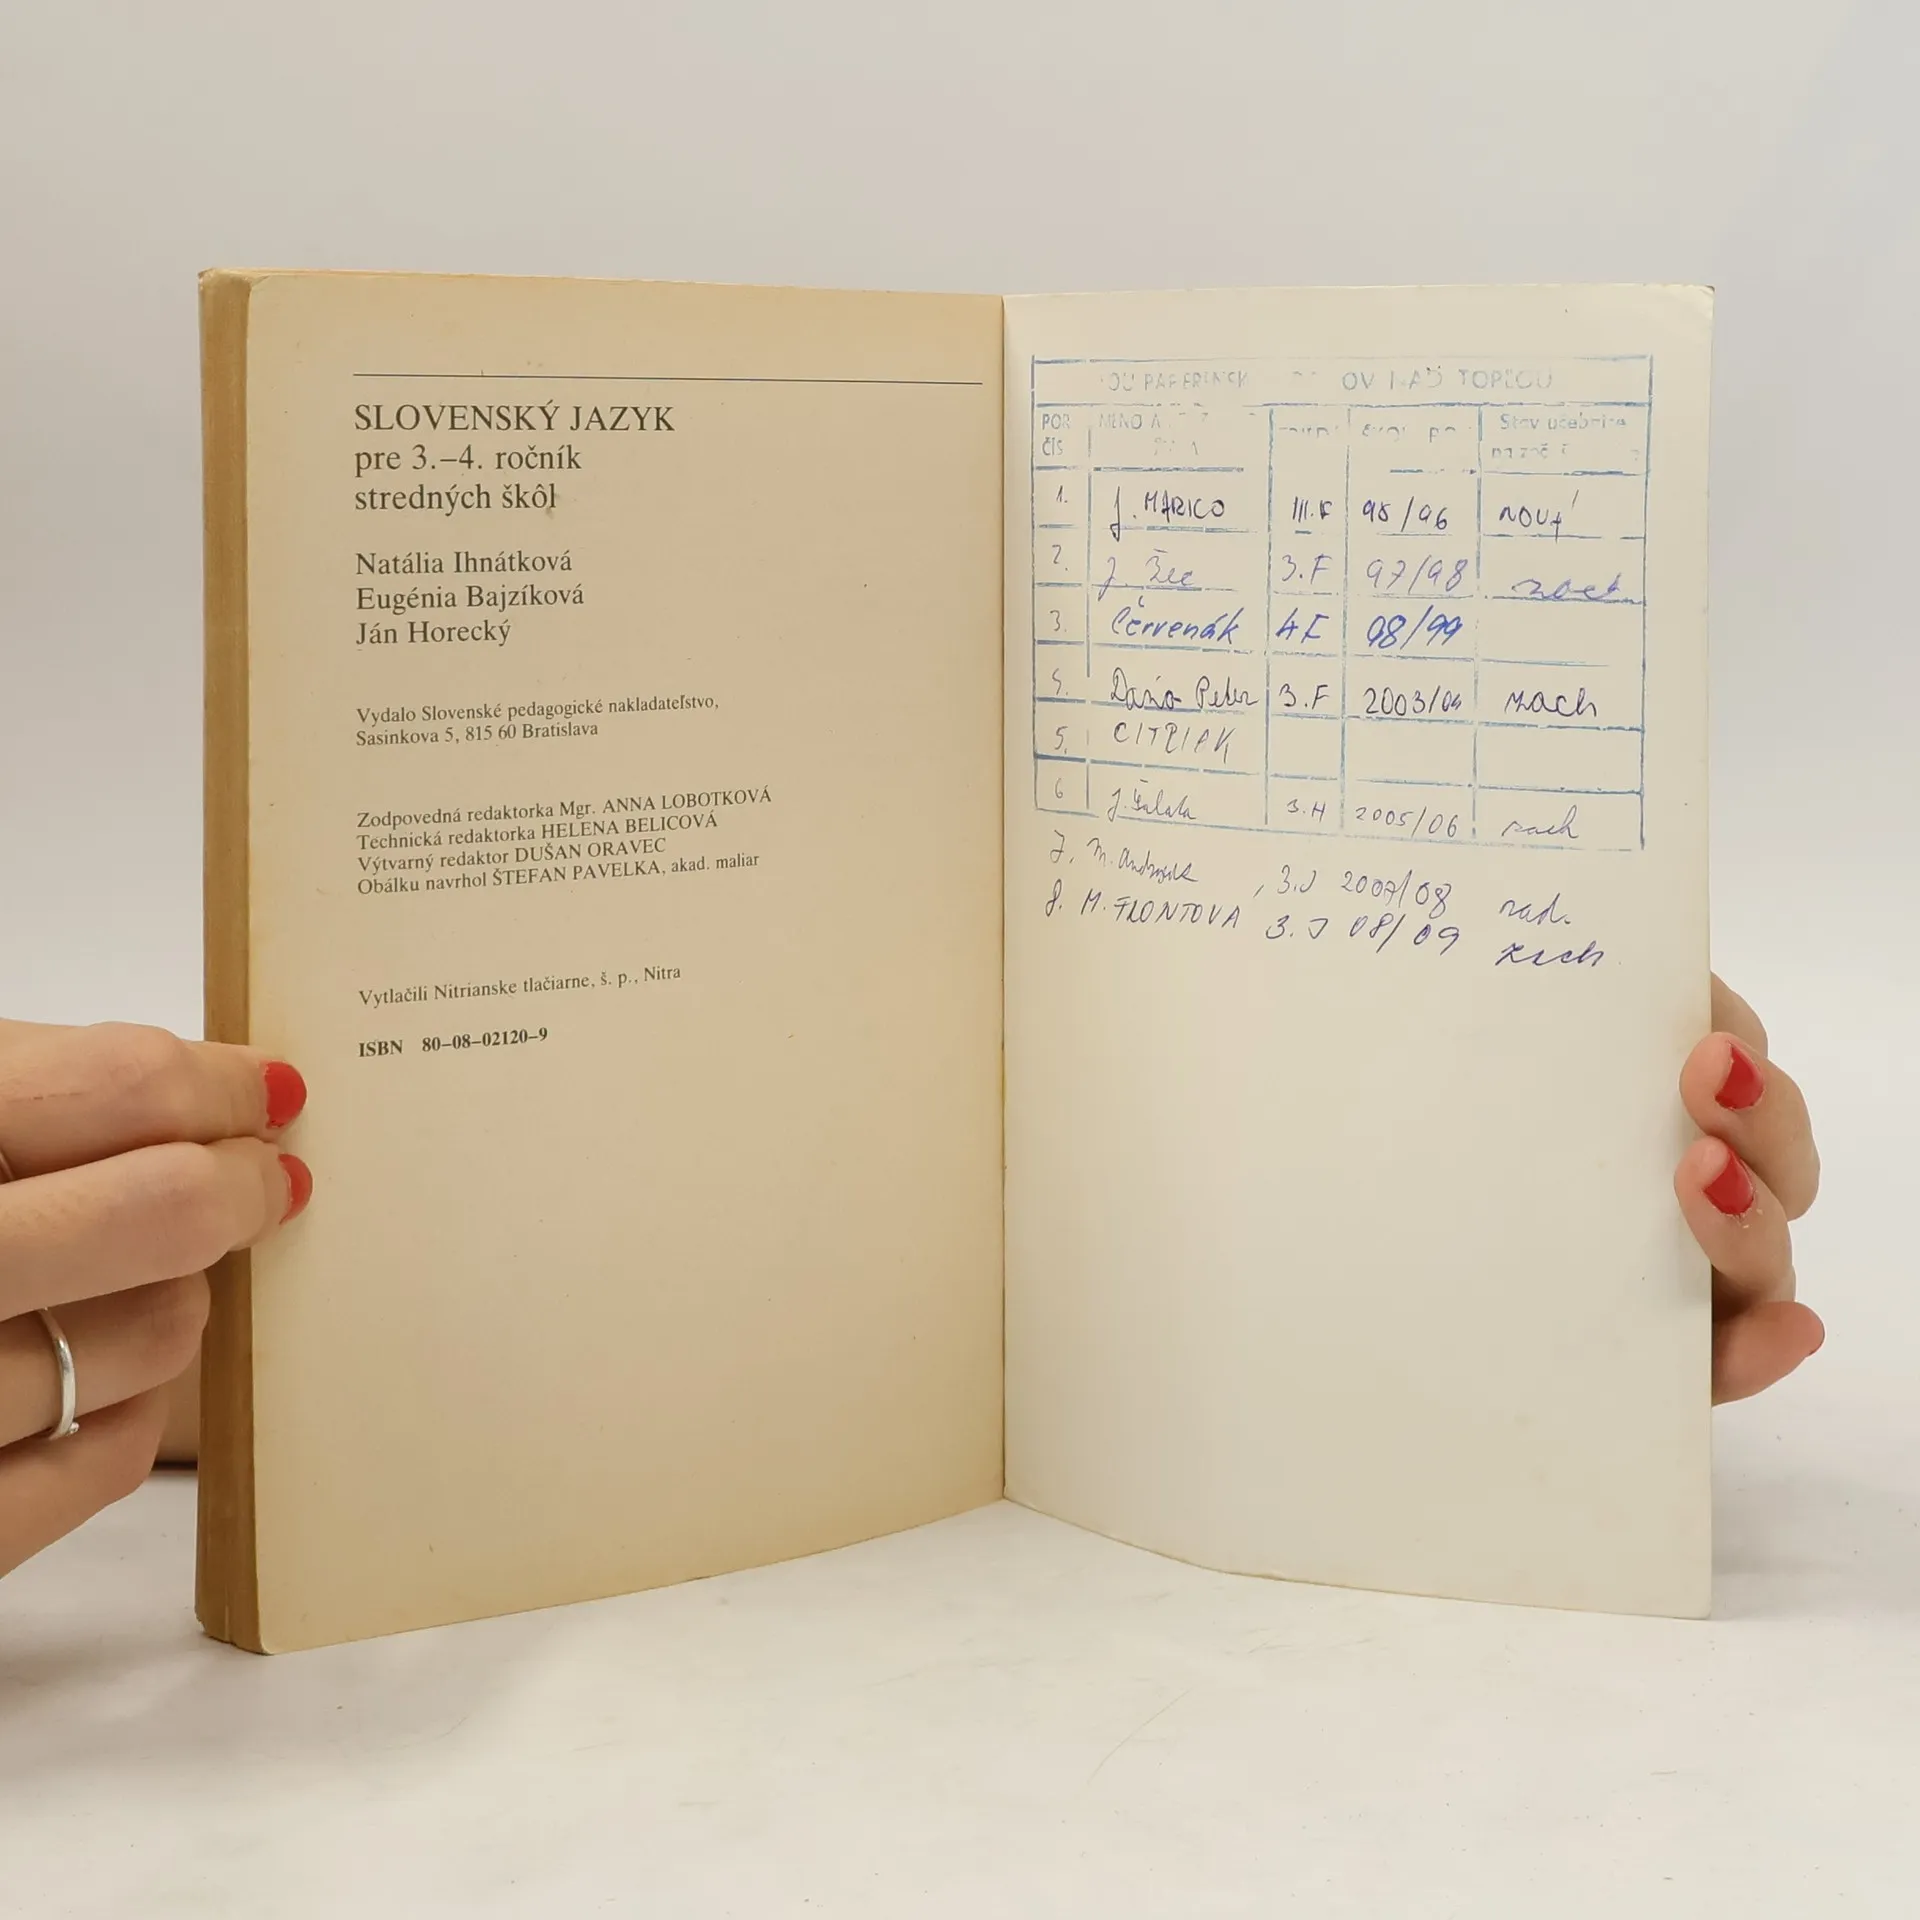 SLOVENSKÝ JAZYK
pre 3.–4. ročník
stredných škôl
Natália Ihnátková
Eugénia Bajzíková
Ján Horecký
Vydalo Slovenské pedagogické nakladateľstvo,
Sasinkova 5, 815 60 Bratislava
Zodpovedná redaktorka Mgr. ANNA LOBOTKOVÁ
Technická redaktorka HELENA BELICOVÁ
Výtvarný redaktor DUŠAN ORAVEC
Obálku navrhol ŠTEFAN PAVELKA, akad. maliar
Vytlačili Nitrianske tlačiarne, š. p., Nitra
ISBN 80–08–02120–9
NAD TOPĽOU
POR ČÍS MENO A Stav učebnice
1. J. MARICO III.F 95/96 nový
2. J. 3.F 97/98
3. Červenák 4F 98/99
4. Peter 3.F 2003/04 zach
5.
6 3.H 2005/06 zach
7. M. 3.J 2007/08
8. M. FRONTOVA 3.J 08/09 zach